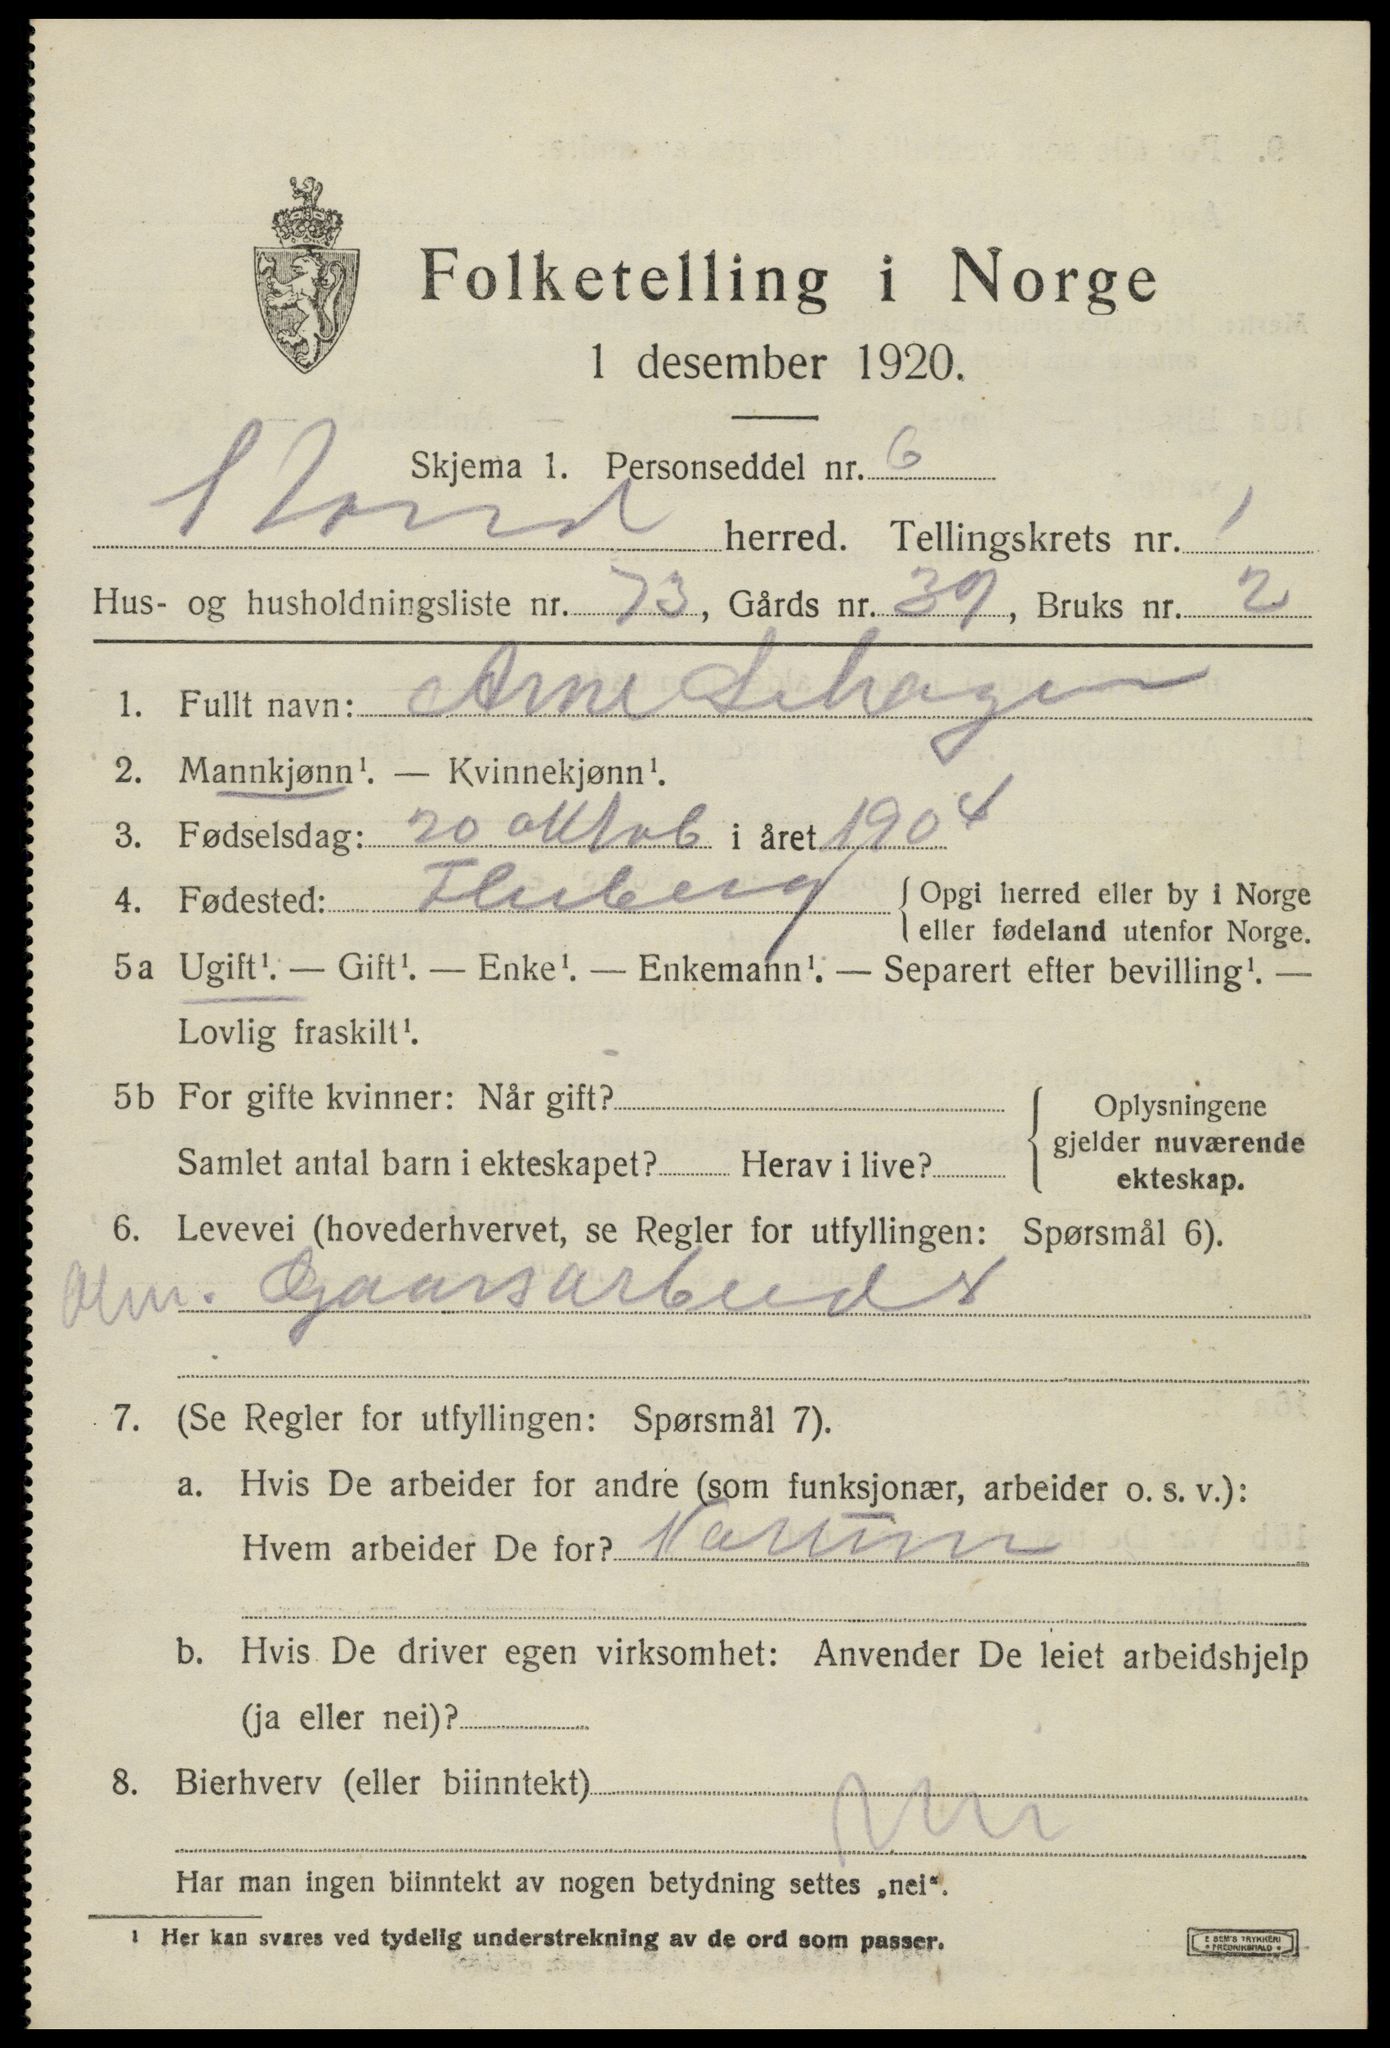 Folketelling i Norge
1 desember 1920.
Skjema 1. Personseddel nr. 6
herred. Tellingskrets nr. 1
Hus- og husholdningsliste nr. 73, Gårds nr. 39, Bruks nr. 2
1. Fullt navn: Arne Lehagen
2. Mannkjønn¹. — Kvinnekjønn¹.
3. Fødselsdag: 20 oktob i året 1904
4. Fødested: Fluberg { Opgi herred eller by i Norge
eller fødeland utenfor Norge.
5a Ugift¹. — Gift¹. — Enke¹. — Enkemann¹. — Separert efter bevilling¹. —
Lovlig fraskilt¹.
5b For gifte kvinner: Når gift?
Samlet antal barn i ekteskapet? Herav i live?
Oplysningene
gjelder nuværende
ekteskap.
6. Levevei (hovederhvervet, se Regler for utfyllingen: Spørsmål 6).
Gaarsarbeider
7. (Se Regler for utfyllingen: Spørsmål 7).
a. Hvis De arbeider for andre (som funksjonær, arbeider o. s. v.):
Hvem arbeider De for?
b. Hvis De driver egen virksomhet: Anvender De leiet arbeidshjelp
(ja eller nei)?
8. Bierhverv (eller biinntekt)
Nei
Har man ingen biinntekt av nogen betydning settes „nei“.
¹ Her kan svares ved tydelig understrekning av de ord som passer.
E SEM'S TRYKKERI
FREDRIKSHALD